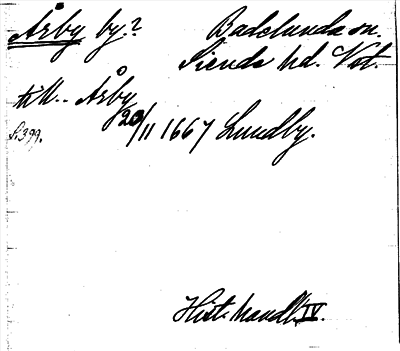 Årby by? Badelunda sn.
Siende hd. Vstm.
till. Årby
S. 399. 20/11 1667 Lundby.
Hist. handl. IV.